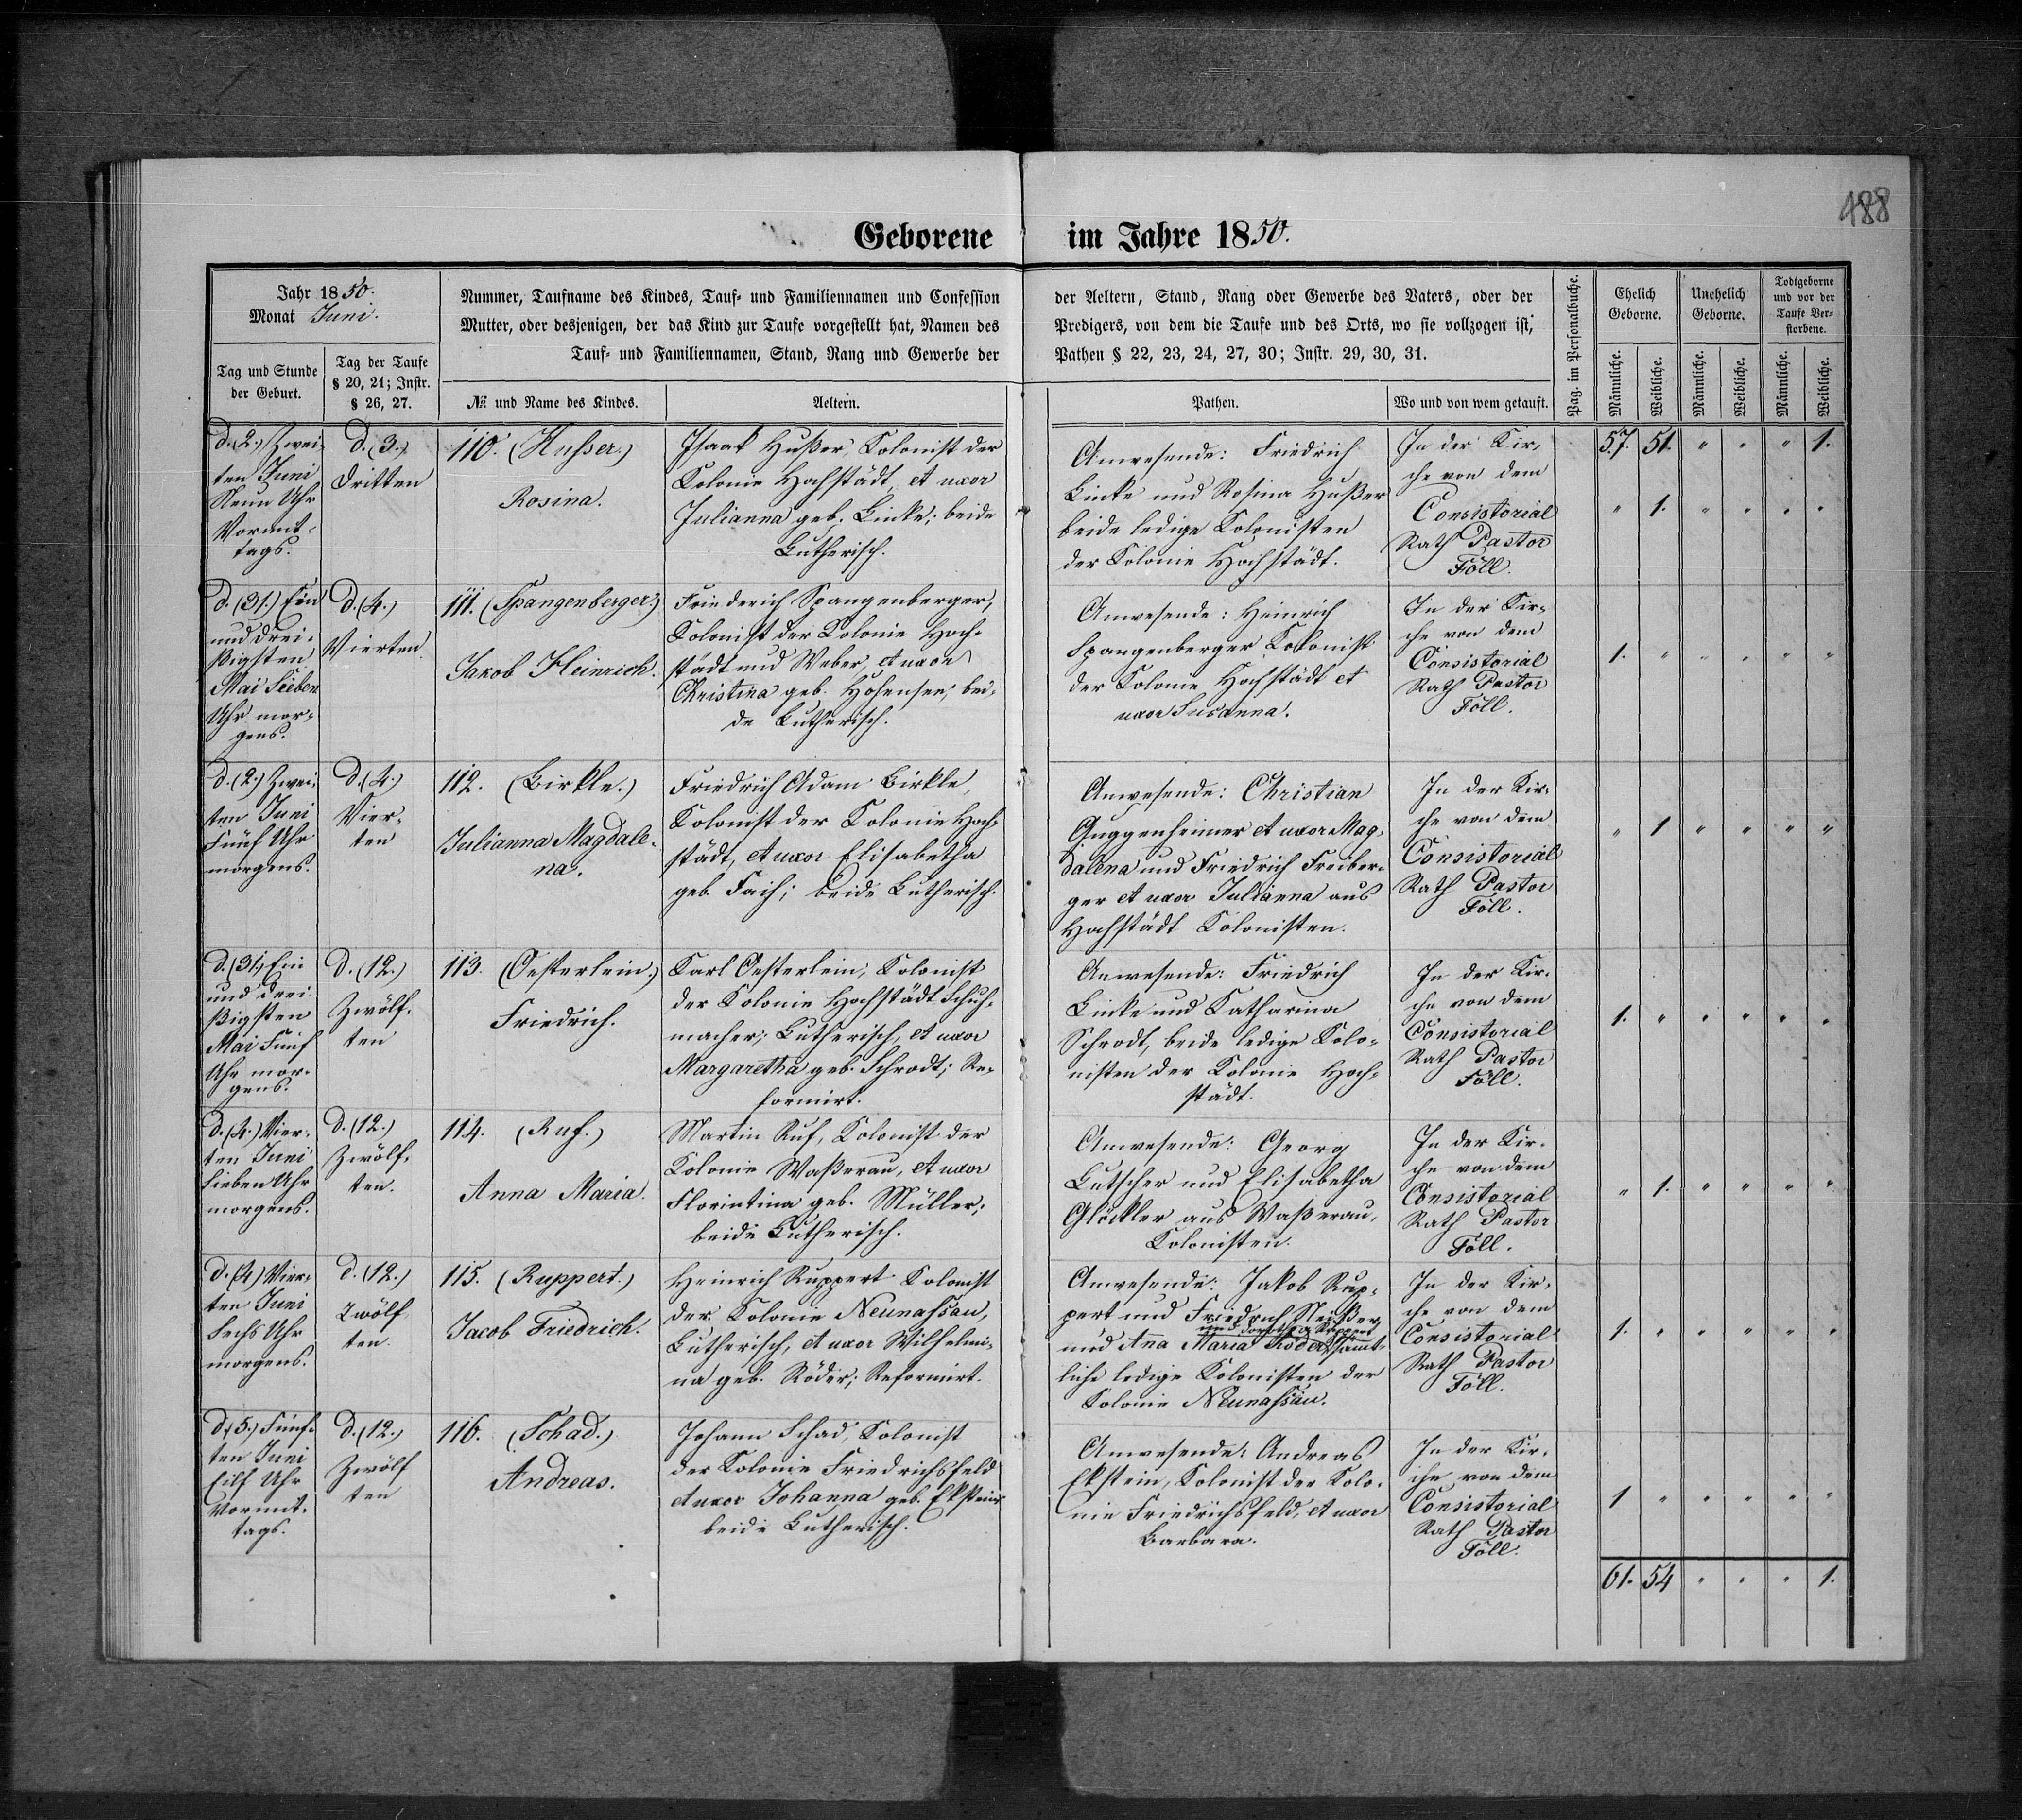 488
Geborene im Jahre 1850.
Jahr 1850.
Monat Juni.
Tag und Stunde
der Geburt.
Tag der Taufe
§ 20, 21; Instr.
§ 26, 27.
Nummer, Taufname des Kindes, Tauf- und Familiennamen und Confession
Mutter, oder desjenigen, der das Kind zur Taufe vorgestellt hat, Namen des
Tauf- und Familiennamen, Stand, Rang und Gewerbe der
№ und Name des Kindes.
Aeltern.
der Aeltern, Stand, Rang oder Gewerbe des Vaters, oder der
Predigers, von dem die Taufe und des Orts, wo sie vollzogen ist,
Pathen § 22, 23, 24, 27, 30; Instr. 29, 30, 31.
Pathen.
Wo und von wem getauft.
Pag. im Personalbuche.
Ehelich
Geborne.
Unehelich
Geborne.
Todtgeborne
und vor der
Taufe Ver-
storbene.
Männliche.
Weibliche.
Männliche.
Weibliche.
Männliche.
Weibliche.
57. 51. " " " 1.
d. (2.) Zwei-
ten Juni
Neun Uhr
Vormit-
tags.
d. (3.)
Dritten
110. (Husser.)
Rosina.
Isaak Hußer, Kolonist der
Kolonie Hochstädt, et uxor
Julianna geb. Linke; beide
Lutherisch.
Anwesende: Friedrich
Linke und Rosina Hußer
beide ledige Kolonisten
der Kolonie Hochstädt.
In der Kir-
che von dem
Consistorial
Rath Pastor
Föll.
" 1. " " " "
d. (31.) Ein
und drei-
ßigsten
Mai Sieben
Uhr mor-
gens.
d. (4.)
Vierten.
111. (Spangenberger.)
Jakob Heinrich.
Friederich Spangenberger,
Kolonist der Kolonie Hoch-
städt und Weber, et uxor
Christina geb. Hohensee; bei-
de Lutherisch.
Anwesende: Heinrich
Spangenberger Kolonist
der Kolonie Hochstädt et
uxor Susanna.
In der Kir-
che von dem
Consistorial
Rath Pastor
Föll.
1. " " " " "
d. (2.) Zwei-
ten Juni
Fünf Uhr
morgens.
d. (4.)
Vier-
ten
112. (Birkle.)
Julianna Magdale-
na.
Friedrich Adam Birkle,
Kolonist der Kolonie Hoch-
städt, et uxor Elisabetha
geb. Faih; beide Lutherisch.
Anwesende: Christian
Guggenheimer et uxor Mag-
dalena und Friedrich Freiber-
ger et uxor Julianna aus
Hochstädt Kolonisten.
In der Kir-
che von dem
Consistorial
Rath Pastor
Föll.
" 1 " " " "
d. (31.) Ein
und drei
ßigsten
Mai Fünf
Uhr mor-
gens.
d. (12.)
Zwölf-
ten
113. (Oesterlein.)
Friedrich.
Karl Oesterlein, Kolonist
der Kolonie Hochstädt Schuh-
macher; Lutherisch, et uxor
Margaretha geb. Schrodt; Re-
formirt.
Anwesende: Friedrich
Linke und Katharina
Schrodt, beide ledige Kolo-
nisten der Kolonie Hoch-
städt.
In der Kir-
che von dem
Consistorial
Rath Pastor
Föll.
1. " " " " "
d. (4.) Vier-
ten Juni
Sieben Uhr
morgens.
d. (12.)
Zwölf-
ten.
114. (Ruf.)
Anna Maria.
Martin Ruf, Kolonist der
Kolonie Waßerau, et uxor
Florintina geb. Müller;
beide Lutherisch.
Anwesende: Georg
Lutscher und Elisabetha
Glöckler aus Waßerau,
Kolonisten.
In der Kir-
che von dem
Consistorial
Rath Pastor
Föll.
" 1. " " " "
d. (4) Vier-
ten Juni
Sechs Uhr
morgens.
d. (12.)
Zwölf
ten.
115. (Ruppert.)
Jacob Friedrich.
Heinrich Ruppert Kolonist
der Kolonie Neunassau,
Lutherisch, et uxor Wilhelmi-
na geb. Röder; Reformirt.
Anwesende: Jakob Rup-
pert und Friedrich Neißer
und Dorothea Ruppert
und Ana Maria Röder, sämt-
liche ledige Kolonisten der
Kolonie Neunassau.
In der Kir-
che von dem
Consistorial
Rath Pastor
Föll.
1. " " " " "
d. (5.) Fünf-
ten Juni
Eilf Uhr
Vormit-
tags.
d. (12.)
Zwölf
ten
116. (Schad.)
Andreas.
Johann Schad, Kolonist
der Kolonie Friedrichsfeld
et uxor Johanna geb. Ekstein
beide Lutherisch.
Anwesende: Andreas
Ekstein, Kolonist der Kolo-
nie Friedrichsfeld, et uxor
Barbara.
In der Kir-
che von dem
Consistorial
Rath Pastor
Föll.
1 " " " " "
61. 54 " " " 1.